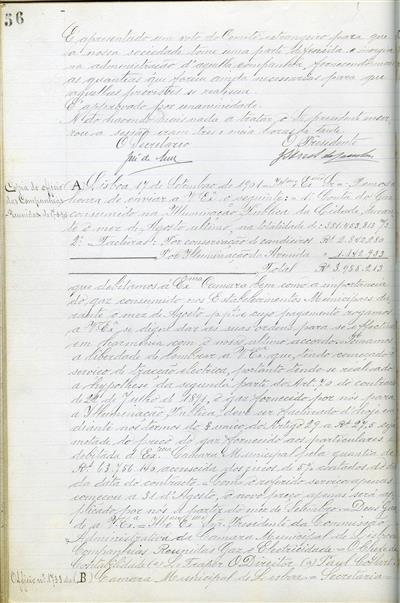 56
E apresentado um voto do Comité estrangeiro para que
a nossa sociedade tome uma parte definida e
na administração d'aquella companhia, fornecendo
as quantias que forem ainda necessarias para que
aquellas previsões se realisem.
É approvado por unanimidade.
Não havendo mais nada a tratar, o Sr. presidente encer-
rou a sessão eram tres e meia horas da tarde.
O Secretario O Presidente
Copia do officio
das Companhias
Reunidas nº
A Lisboa 17 de Setembro de 1901 Sr = Temos a
honra de enviar a V. Exª o seguinte: = 1º Conta do Gaz
consumido na Illuminação Publica da Cidade, duran-
te o mez de Agosto ultimo, na totalidade de
2º Facturas: Por conservação de candieiros Rs 2.842.280
Por Illuminação da Avenida 1.142.933
Total Rs 3.985.213
que debitamos á Exma Camara bem como a importancia
do gaz consumido nos Estabelecimentos Municipaes du-
rante o mez de Agosto p.p. cujo pagamento rogamos
a V. Exª se digne dar as suas ordens para se effectuar
em harmonia com o nosso ultimo accordo. Tomamos
a liberdade de lembrar a V. Exª que, tendo começado o
serviço de tracção electrica, portanto tendo se realisado
a hypothese da segunda parte do Art. do contracto
de 26 de Julho de 1891, o gaz fornecido por nós para
a Illuminação Publica, deve ser facturado d'hoje em
diante nos termos do § unico do Artigo 29 a Rs
metade do preço do gaz fornecido aos particulares
debitada á Exma Camara Municipal pela quantia de
Rs 63.756 accrescida dos juros de 5% contados desde
da data do contracto. Como o referido serviço apenas
começou a 31 d'Agosto, o novo preço apenas será ap-
plicado por nós a partir do mez de Setembro = Deus Guar-
de a V. Exª = Sr. Presidente da Commissão
Administrativa da Camara Municipal de Lisboa
Companhias Reunidas Gaz e Electricidade = O Chefe da
Contabilidade (a) O Director, (a) Paul
Officio nº 1733 da
B Camara Municipal de Lisboa = Secretaria =